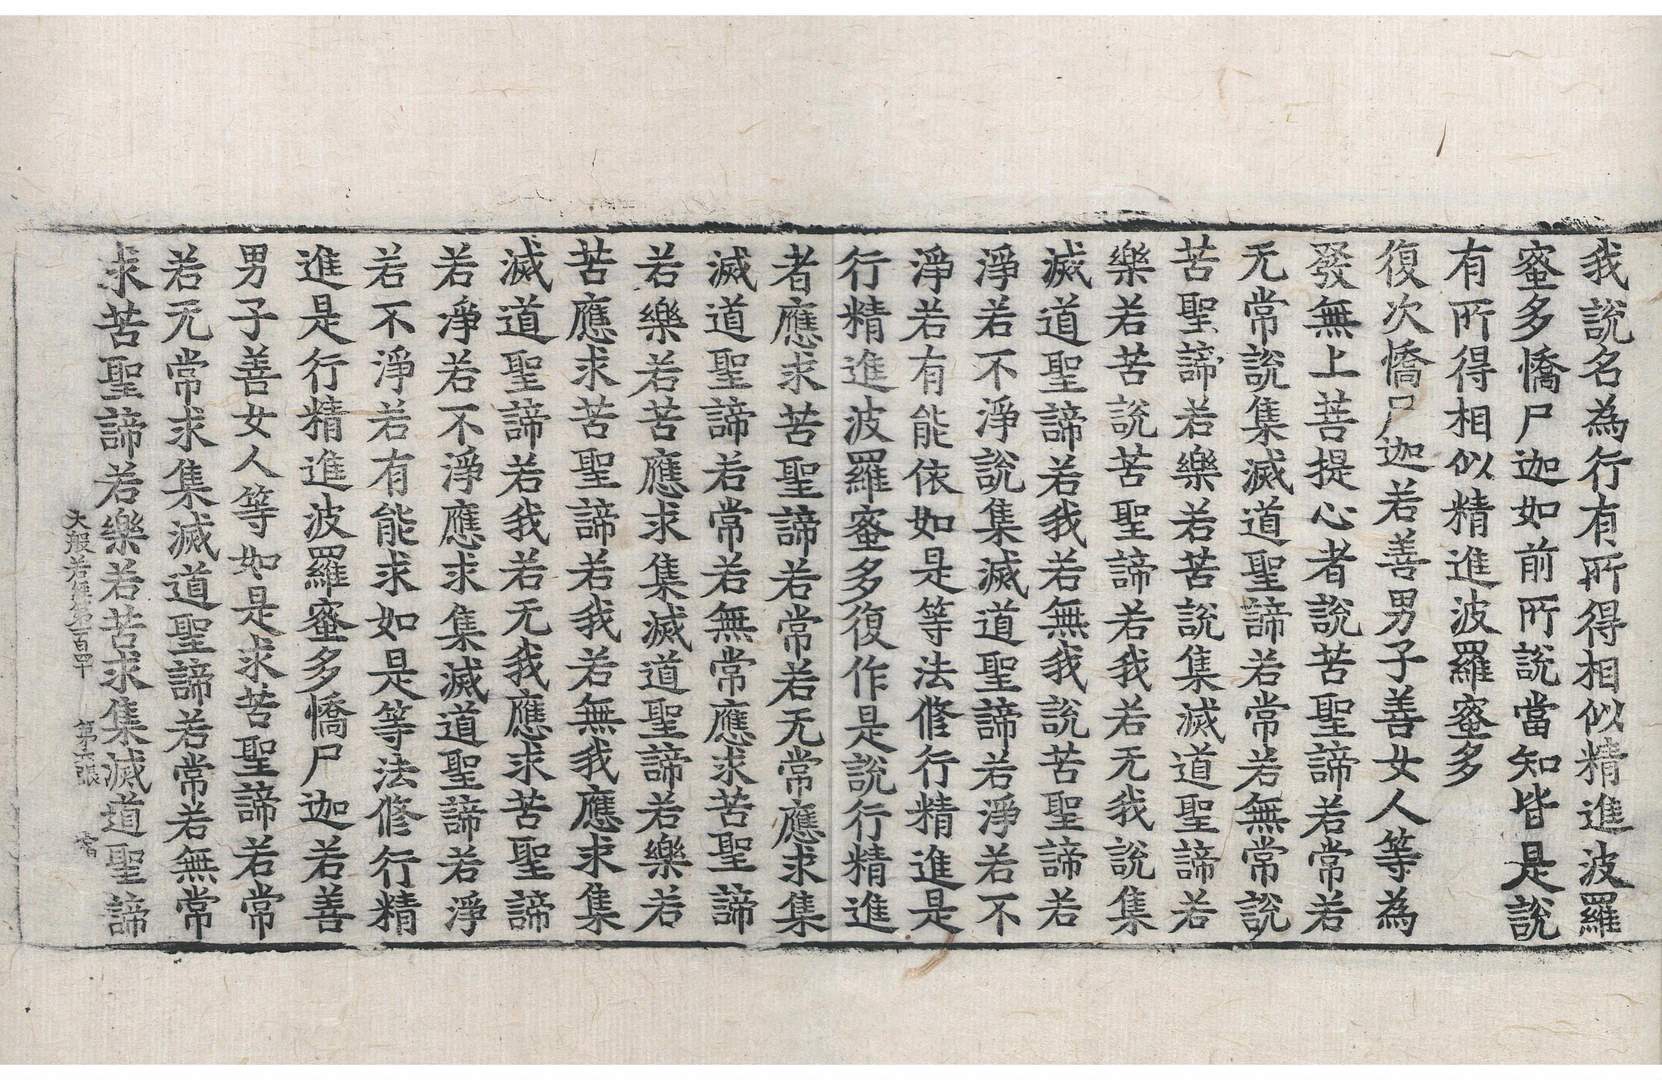 我說名為行有所得相似精進波羅
蜜多憍尸迦如前所說當知皆是說
有所得相似精進波羅蜜多
復次憍尸迦若善男子善女人等為
發無上菩提心者說苦聖諦若常若
无常說集滅道聖諦若常若無常說
苦聖諦若樂若苦說集滅道聖諦若
樂若苦說苦聖諦若我若无我說集
滅道聖諦若我若無我說苦聖諦若
淨若不淨說集滅道聖諦若淨若不
淨若有能依如是等法修行精進是
行精進波羅蜜多復作是說行精進
者應求苦聖諦若常若无常應求集
滅道聖諦若常若無常應求苦聖諦
若樂若苦應求集滅道聖諦若樂若
苦應求苦聖諦若我若無我應求集
滅道聖諦若我若无我應求苦聖諦
若淨若不淨應求集滅道聖諦若淨
若不淨若有能求如是等法修行精
進是行精進波羅蜜多憍尸迦若善
男子善女人等如是求苦聖諦若常
若无常求集滅道聖諦若常若無常
求苦聖諦若樂若苦求集滅道聖諦
大般若經第一百四十 第六張